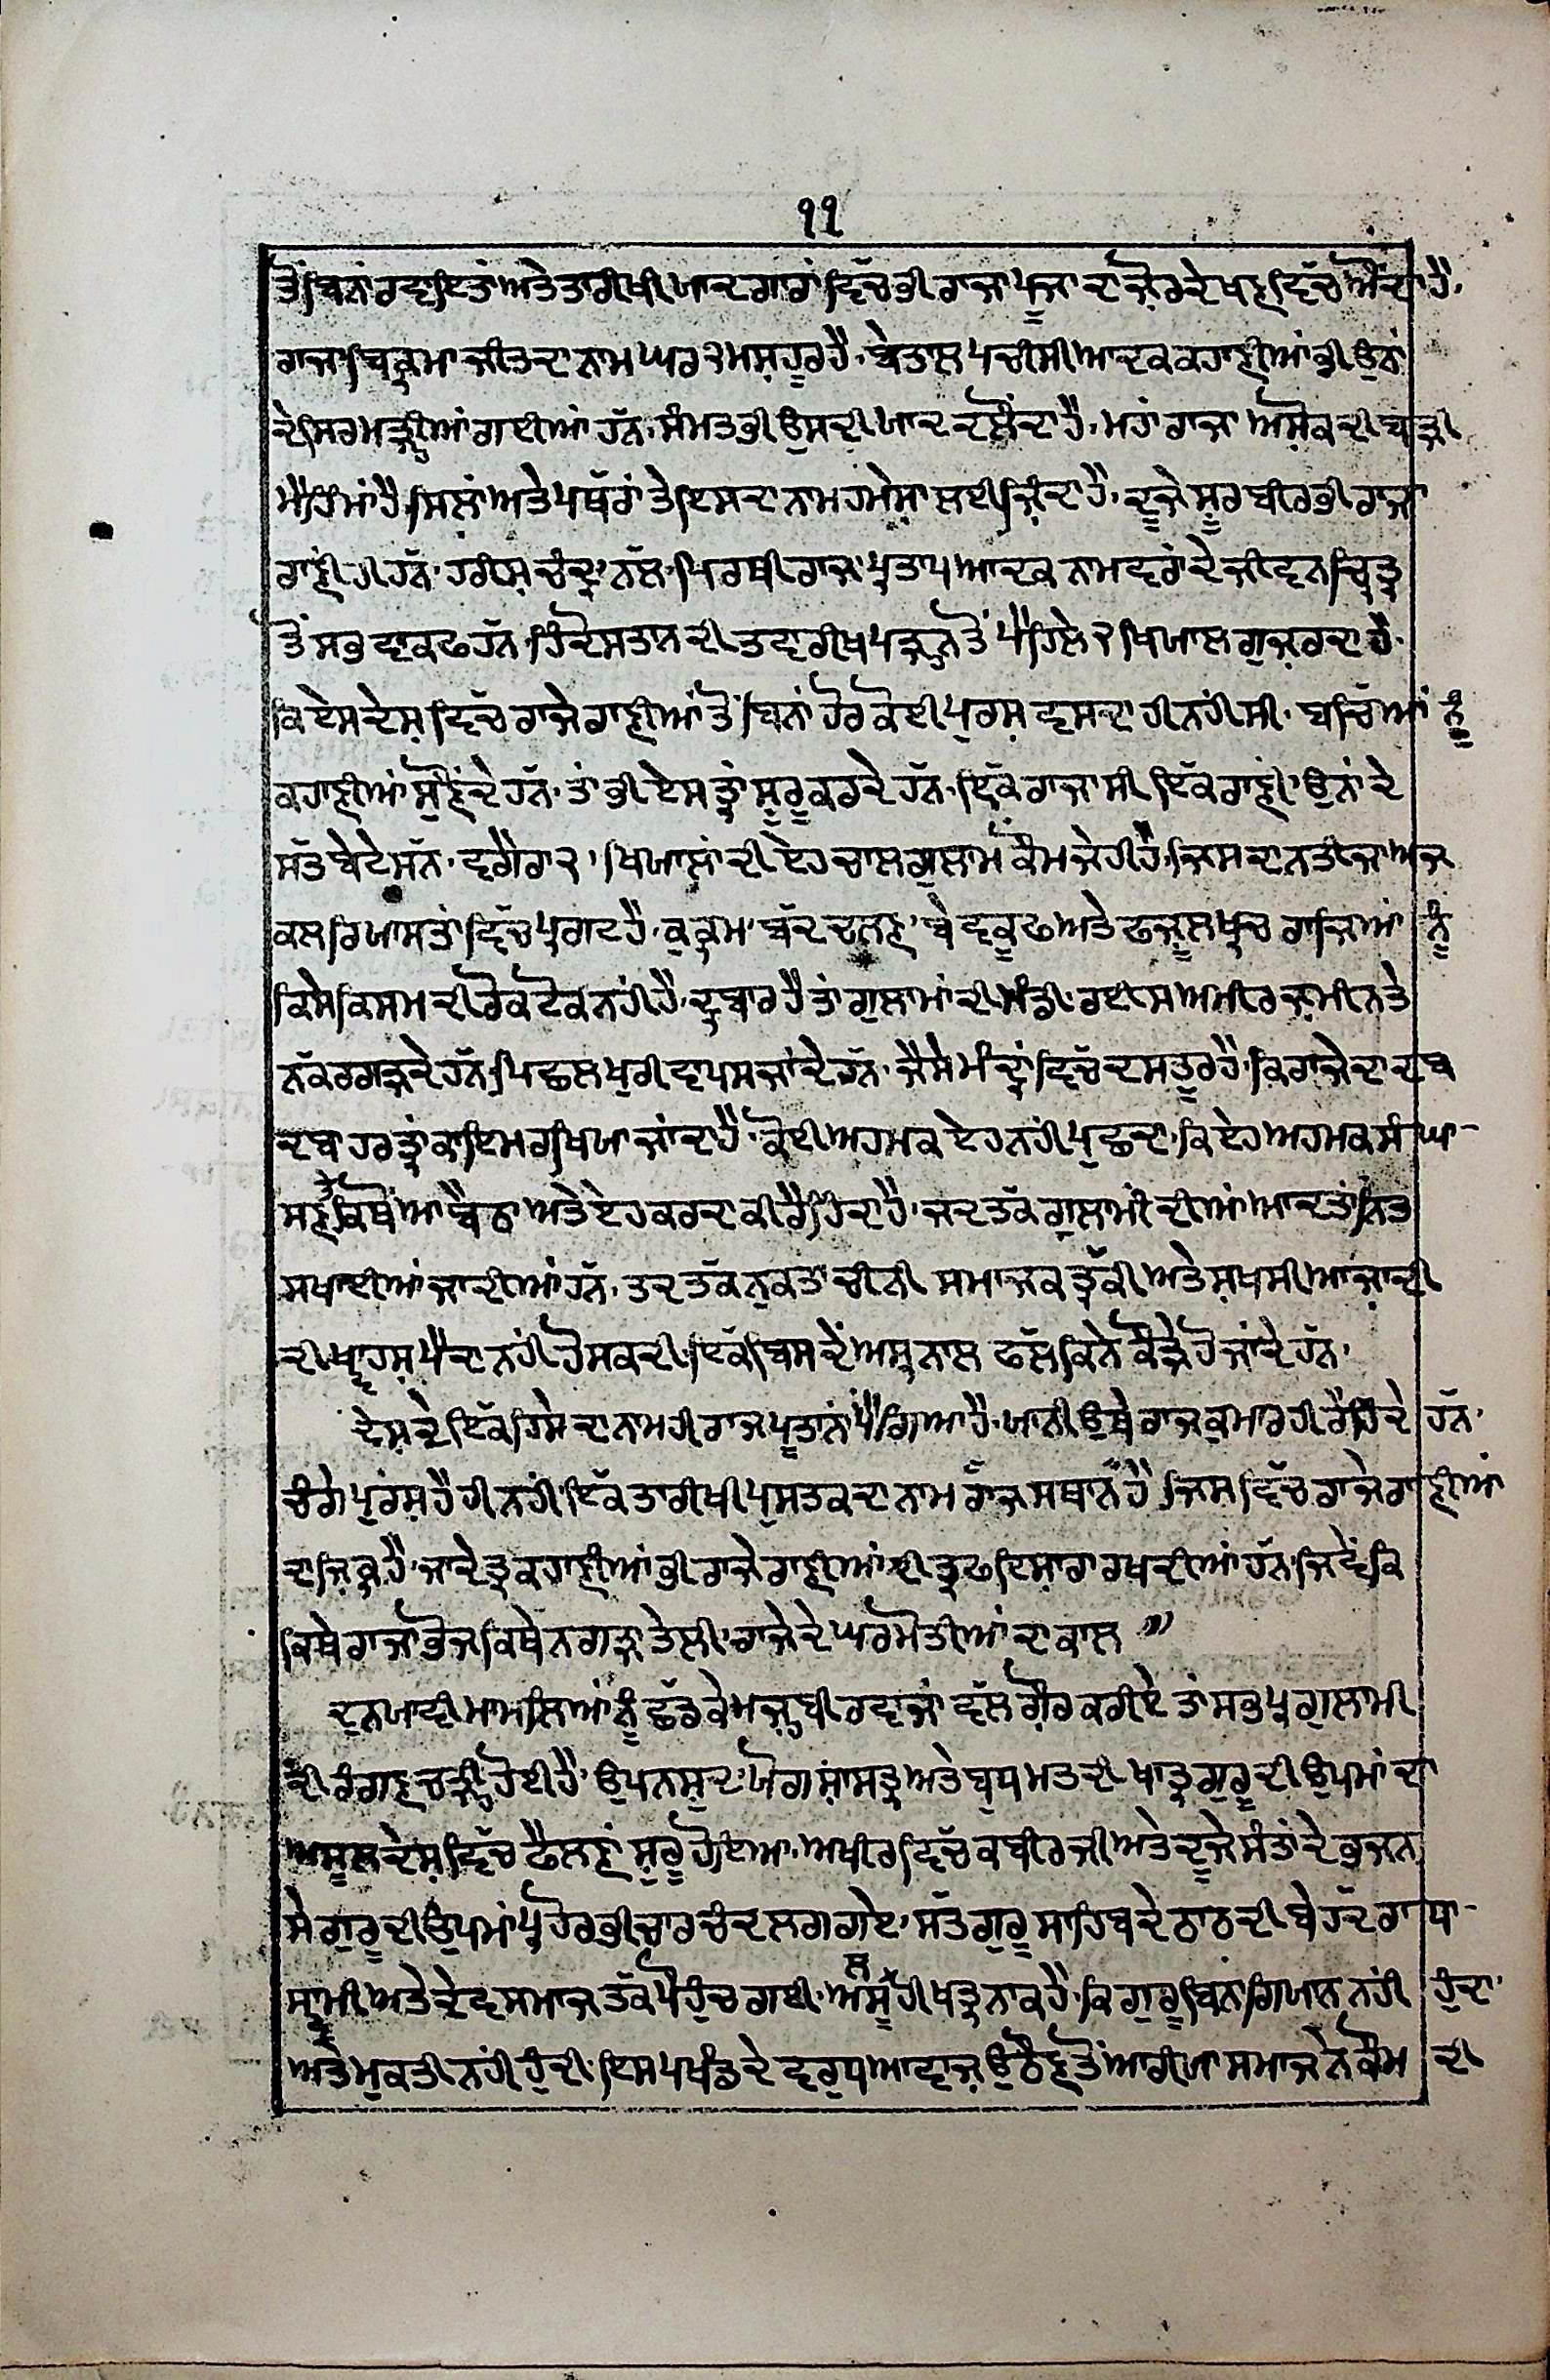 ੧੧
ਤੋਂ ਬਿਨਾਂ ਰਵਾਇਤਾਂ ਅਤੇ ਤਾਰੀਖੀ ਯਾਦਗਾਰਾਂ ਵਿੱਚ ਭੀ ਰਾਜਾ ਪੂਜਾ ਦਾ ਜ਼ੋਰ ਦੇਖਣ ਵਿੱਚ ਔਂਦਾ ਹੈ,
ਰਾਜਾ ਬਿਕ੍ਰਮਾਜੀਤ ਦਾ ਨਾਮ ਘਰ ੨ ਮਸ਼ਹੂਰ ਹੈ, ਬੇਤਾਲ ਪਚੀਸੀ ਆਦਕ ਕਹਾਣੀਆਂ ਭੀ ਉਨਾਂ
ਦੇ ਸਿਰ ਮੜ੍ਹੀਆਂ ਗਈਆਂ ਹੱਨ, ਸੰਮਤ ਭੀ ਉਸਦੀ ਯਾਦ ਦਲੌਂਦਾ ਹੈ, ਮਹਾਂਰਾਜਾ ਅਸ਼ੋਕ ਦੀ ਬਾੜੀ
ਮੈਹਿਮਾਂ ਹੈ, ਸਿਲਾਂ ਅਤੇ ਪਥੱਰਾਂ ਤੇ ਇਸਦਾ ਨਾਮ ਹਮੇਸ਼ਾ ਲਈ ਜ਼ਿੰਦਾ ਹੈ, ਦੂਜੇ ਸੂਰਬੀਰ ਭੀ ਰਾਜਾ
ਰਾਣੀਂ ਹੀ ਹਨੱ, ਹਰੀਸ਼ ਚੰਦ੍ਰ, ਨੱਲ, ਪਿਰਥੀ ਰਾਜ, ਪ੍ਰਤਾਪ ਆਦਕ ਨਾਮਵਰਾਂ ਦੇ ਜੀਵਨ ਚ੍ਰਿਤ੍ਰ
ਤੋਂ ਸਭ ਵਾਕਫ ਹਨੱ, ਹਿੰਦੋਸਤਾਨ ਦੀ ਤਵਾਰੀਖ ਪੜ੍ਹਨ ਤੋਂ ਪੈਹਿਲੇ ੨ ਖਿਯਾਲ ਗੁਜ਼ਰਦਾ ਹੈ,
ਕਿ ਏਸ ਦੇਸ਼ ਵਿੱਚ ਰਾਜੇ ਰਾਣੀਆਂ ਤੋਂ ਬਿਨਾਂ ਹੋਰ ਕੋਈ ਪੁਰਸ਼ ਵਸਦਾ ਹੀ ਨਹੀਂ ਸੀ, ਬਚਿੱਆਂ ਨੂੰ
ਕਹਾਣੀਆਂ ਸੁਣੌਂਦੇ ਹਨੱ, ਤਾਂ ਭੀ ਏਸ ਤ੍ਰਾਂ ਸ਼ੁਰੂ ਕਰਦੇ ਹਨੱ, ਇਕੱ ਰਾਜਾ ਸੀ ਇਕੱ ਰਾਣੀਂ, ਉਨਾਂ ਦੇ
ਸੱਤ ਬੇਟੇ ਸੱਨ, ਵਗੈਰਾ ੨, ਖਿਯਾਲਾਂ ਦੀ ਏਹ ਚਾਲ ਗੁਲਾਮ ਕੌਮ ਜੇਹੀ ਹੈ, ਜਿਸ ਦਾ ਨਤੀਜਾ ਅਜ
ਕਲ ਰਿਯਾਸਤਾਂ ਵਿੱਚ ਪ੍ਰਗਟ ਹੈ, ਕੁਕ੍ਰਮ, ਬੱਦ ਚਲਣ, ਬੇਵਕੂਫ ਅਤੇ ਫਜ਼ੂਲ ਖ੍ਰਚ ਰਾਜਿਆਂ ਨੂੰ
ਕਿਸੇ ਕਿਸਮ ਦੀ ਰੋਕ ਟੋਕ ਨਹੀਂ ਹੈ, ਦ੍ਰਬਾਰ ਹੈ ਤਾਂ ਗੁਲਾਮਾਂ ਦੀ ਮੰਡੀ, ਰਈਸ ਅਮੀਰ ਜ਼ਮੀਨ ਤੇ
ਨੱਕ ਰਗੜਦੇ ਹੱਨ, ਪਿਛਲ ਖੁਰੀ ਵਾਪਸ ਜਾਂਦੇ ਹੱਨ, ਜੈਸੇ ਮੰਦ੍ਰਾਂ ਵਿੱਚ ਦਸਤੂਰ ਹੈ, ਕਿ ਰਾਜੇ ਦਾ ਦਬ
ਦਬਾ ਹਰ ਤ੍ਰਾਂ ਕਾਇਮ ਰਖਿਯਾ ਜਾਂਦਾ ਹੈ, ਕੋਈ ਅਹਮਕ ਏਹ ਨਹੀਂ ਪੁਛਦਾ, ਕਿ ਏਹ ਅਹਮਕ ਸੰਘਾ-
ਸਣ ਤੇ ਕਿਥੋਂ ਆ ਬੈਠਾ ਅਤੇ ਏਹ ਕਰਦਾ ਕੀ ਰੈਹਿੰਦਾ ਹੈ, ਜਦ ਤਕੱ ਗੁਲਾਮੀ ਦੀਆਂ ਆਦਤਾਂ ਨਿਤ
ਸਖਾਈਆਂ ਜਾਦੀਆਂ ਹੱਨ, ਤਦ ਤੱਕ ਨੁਕਤਾਚੀਨੀ ਸਮਾਜਕ ਤ੍ਰੱਕੀ ਅਤੇ ਸ਼ਖਸੀ ਆਜ਼ਾਦੀ
ਦੀ ਖ੍ਵਾਹਸ਼ ਪੈਦਾ ਨਹੀਂ ਹੋ ਸਕਦੀ, ਇਕੱ ਬਿਸ ਦੇ ਅਸ੍ਰ ਨਾਲ ਫੱਲ ਕਿਨੇ ਕੌੜੇ ਹੋ ਜਾਂਦੇ ਹੱਨ,
ਦੇਸ਼ ਦੇ ਇਕੱ ਹਿੱਸੇ ਦਾ ਨਾਮ ਹੀ ਰਾਜਪੂਤਾਨਾਂ ਪੈ ਗਿਆ ਹੈ, ਯਾਨੀ ਉਥੇ ਰਾਜ ਕੁਮਾਰ ਹੀ ਰੈਹਿੰਦੇ ਹੱਨ,
ਚੰਗੇ ਪੁਰਸ਼ ਹੈ ਹੀ ਨਹੀਂ, ਇਕੱ ਤਾਰੀਖੀ ਪੁਸਤਕ ਦਾ ਨਾਮ "ਰਾਜਸਥਾਨ" ਹੈ, ਜਿਸ ਵਿੱਚ ਰਾਜੇ ਰਾਣੀਆਂ
ਦਾ ਜ਼ਿਕ੍ਰ ਹੈ, ਜਾਦੇਤ੍ਰ ਕਹਾਣੀਆਂ ਭੀ ਰਾਜੇ ਰਾਣੀਆਂ ਦੀ ਤ੍ਰਫ ਇਸ਼ਾਰਾ ਰਖਦੀਆਂ ਹੱਨ, ਜਿਵੇਂ ਕਿ
ਕਿਥੇ ਰਾਜਾ ਭੋਜ ਕਿਥੇ ਨਗੜਾ ਤੇਲੀ, ਰਾਜੇ ਦੇ ਘਰ ਮੋਤੀਆਂ ਦਾ ਕਾਲ"
ਦੁਨਯਾਵੀ ਮਾਮਲਿਆਂ ਨੂੰ ਛੱਡਕੇ ਮਜ਼੍ਹਬੀ ਰਵਾਜਾਂ ਵੱਲ ਗ਼ੌਰ ਕਰੀਏ ਤਾਂ ਸਭ ਪ੍ਰ ਗੁਲਾਮੀ
ਦੀ ਰੰਗਣ ਚੜ੍ਹੀ ਹੋਈ ਹੈ, ਉਪਨਸ਼ਦ, ਯੋਗ ਸ਼ਾਸਤ੍ਰ ਅਤੇ ਬੁਧ ਮਤ ਦੀ ਖਾਤ੍ਰ ਗੁਰੂ ਦੀ ਉਪਮਾਂ ਦਾ
ਅਸੂਲ ਦੇਸ਼ ਵਿੱਚ ਫੈਲਣਾਂ ਸ਼ੁਰੂ ਹੋਇਆ, ਅਖੀਰ ਵਿੱਚ ਕਬੀਰ ਜੀ ਅਤੇ ਦੂਜੇ ਸੰਤਾਂ ਦੇ ਭਜਨ
ਸੇ ਗੁਰੂ ਦੀ ਉਪਮਾਂ ਪ੍ਰ ਹੋਰ ਭੀ ਚਾਰ ਚੰਦ ਲਗ ਗਏ, ਸੱਤ ਗੁਰੂ ਸਾਹਿਬ ਦੇ ਠਾਠ ਦੀ ਬੇ ਹੱਦ ਰਾਧਾ-
ਸ੍ਵਾਮੀ ਅਤੇ ਦੇਵ ਸਮਾਜ ਤੱਕ ਪੌਹੁੰਚ ਗਈ, ਅਸੂਲ ਹੀ ਖਤ੍ਰਨਾਕ ਹੈ, ਕਿ ਗੁਰੂ ਬਿਨਾ ਗਿਯਾਨ ਨਹੀਂ ਹੁੰਦਾ,
ਅਤੇ ਮੁਕਤੀ ਨਹੀਂ ਹੁੰਦੀ, ਇਸ ਪਖੰਡ ਦੇ ਵਰੁਧ ਆਵਾਜ਼ ਉਠੌਣ ਤੋਂ ਆਰੀਯਾ ਸਮਾਜ ਨੇ ਕੌਮ ਦੀ